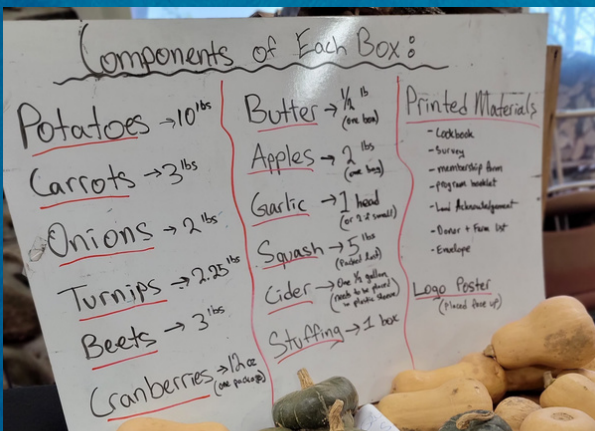 Components of Each Box:
Potatoes → 10 lbs
Carrots → 3 lbs
Onions → 2 lbs
Turnips → 2.25 lbs
Beets → 3 lbs
Cranberries → 12 oz
(one package)
Butter → 1/2 lb
(one box)
Apples → 2 lbs
(one bag)
Garlic → 1 head
(or 2 if small)
Squash → 5 lbs
(Packed last)
Cider → One 1/2 gallon
(needs to be placed
in plastic sleeve)
Stuffing → 1 box
Printed Materials
- Cookbook
- Survey
- membership form
- program booklet
- Land Acknowledgement
- Donor + Farm list
- Envelope
Logo Poster
(Placed face up)